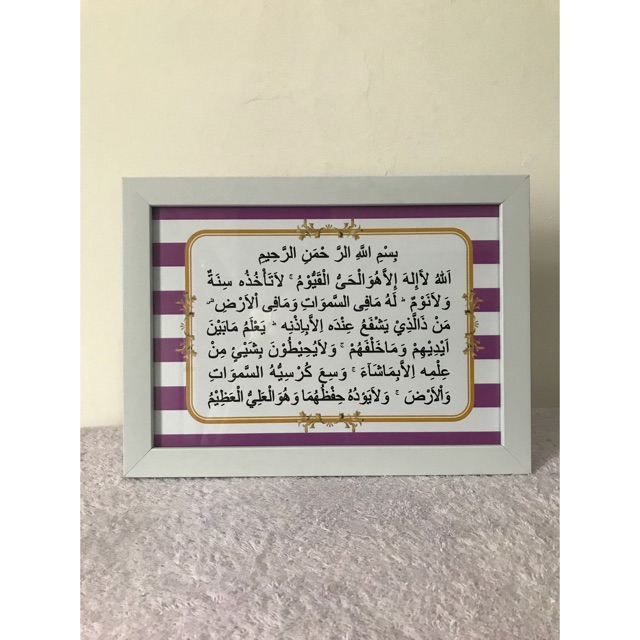 بِسْمِ اللَّهِ الرَّ حْمَنِ الرَّحِيمِ
اَللهُ لآاِلهَ اِلاَّهُوَالْحَىُّ الْقَيُّوْمُ ۚ لاَتَأْخُذُه سِنَةٌ
وَلاَنَوْمٌ ۗ لَهُ مَافِى السَّموَاتِ وَمَافِى اْلاَرْضِ ۗ
مَنْ ذَالَّذِيْ يَشْفَعُ عِنْدَه اِلاَّبِاِذْنِه ۗ يَعْلَمُ مَابَيْنَ
اَيْدِيْهِمْ وَمَاخَلْفَهُمْ ۚ وَلاَيُحِيْطُوْنَ بِشَيْئٍ مِنْ
عِلْمِه اِلاَّبِمَاشَآءَ ۚ وَسِعَ كُرْسِيُّهُ السَّموَاتِ
وَاْلاَرْضَ ۚ وَلاَيَؤدُهُ حِفْظُهُمَا وَهُوَالْعَلِيُّ الْعَظِيْمُ